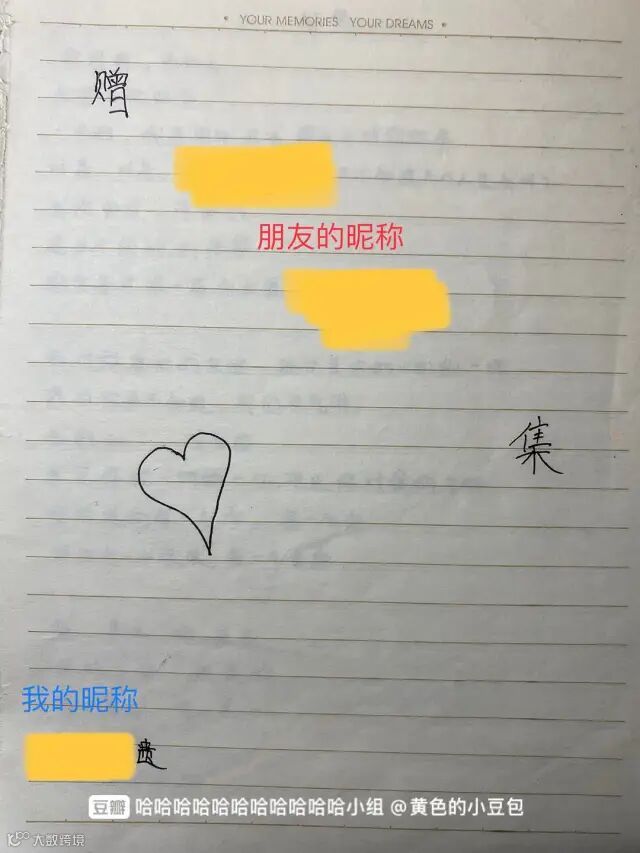 YOUR MEMORIES YOUR DREAMS
赠
朋友的昵称
集
我的昵称
遗
豆瓣 哈哈哈哈哈哈哈哈哈哈哈小组 @黄色的小豆包
大数跨境